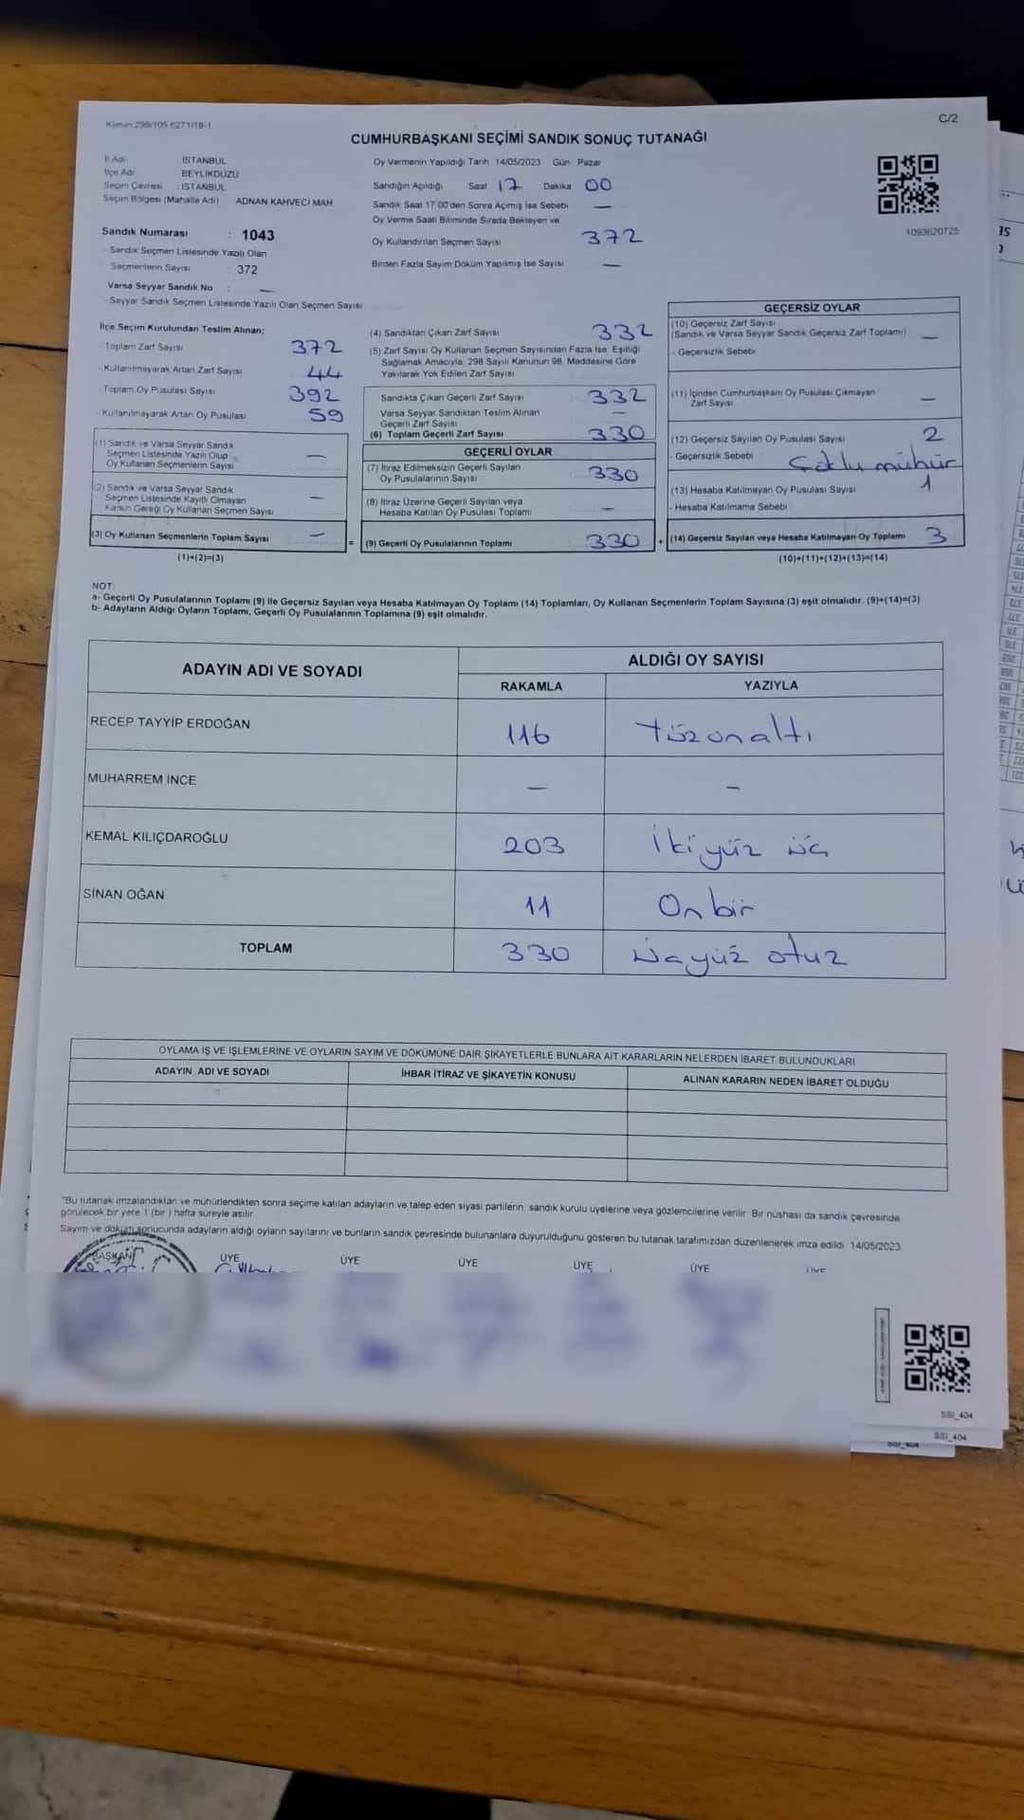 Kanun:298/105 6271/18-1
C/2
CUMHURBAŞKANI SEÇİMİ SANDIK SONUÇ TUTANAĞI
İl Adı : İSTANBUL
İlçe Adı : BEYLİKDÜZÜ
Seçim Çevresi : İSTANBUL
Seçim Bölgesi (Mahalle Adı) ADNAN KAHVECİ MAH
Sandık Numarası : 1043
- Sandık Seçmen Listesinde Yazılı Olan
Seçmenlerin Sayısı : 372
Varsa Seyyar Sandık No : —
- Seyyar Sandık Seçmen Listesinde Yazılı Olan Seçmen Sayısı
Oy Vermenin Yapıldığı Tarih 14/05/2023 Gün Pazar
Sandığın Açıldığı Saat 17 Dakika 00
Sandık Saat 17:00'den Sonra Açılmış İse Sebebi —
Oy Verme Saati Bitiminde Sırada Bekleyen ve
Oy Kullandırılan Seçmen Sayısı 372
Birden Fazla Sayım Döküm Yapılmış İse Sayısı —
1093620725
İlçe Seçim Kurulundan Teslim Alınan;
- Toplam Zarf Sayısı 372
- Kullanılmayarak Artan Zarf Sayısı 44
- Toplam Oy Pusulası Sayısı 392
- Kullanılmayarak Artan Oy Pusulası 59
(1) Sandık ve Varsa Seyyar Sandık
Seçmen Listesinde Yazılı Olup
Oy Kullanan Seçmenlerin Sayısı —
(2) Sandık ve Varsa Seyyar Sandık
Seçmen Listesinde Kayıtlı Olmayan
Kanun Gereği Oy Kullanan Seçmen Sayısı —
(3) Oy Kullanan Seçmenlerin Toplam Sayısı —
(1)+(2)=(3)
(4) Sandıktan Çıkan Zarf Sayısı 332
(5) Zarf Sayısı Oy Kullanan Seçmen Sayısından Fazla İse, Eşitliği
Sağlamak Amacıyla, 298 Sayılı Kanunun 98. Maddesine Göre
Yakılarak Yok Edilen Zarf Sayısı
Sandıkta Çıkan Geçerli Zarf Sayısı 332
Varsa Seyyar Sandıktan Teslim Alınan
Geçerli Zarf Sayısı —
(6) Toplam Geçerli Zarf Sayısı 330
GEÇERLİ OYLAR
(7) İtiraz Edilmeksizin Geçerli Sayılan
Oy Pusulalarının Sayısı 330
(8) İtiraz Üzerine Geçerli Sayılan veya
Hesaba Katılan Oy Pusulası Toplamı —
= (9) Geçerli Oy Pusulalarının Toplamı 330
GEÇERSİZ OYLAR
(10) Geçersiz Zarf Sayısı
(Sandık ve Varsa Seyyar Sandık Geçersiz Zarf Toplamı) —
- Geçersizlik Sebebi
(11) İçinden Cumhurbaşkanı Oy Pusulası Çıkmayan
Zarf Sayısı —
(12) Geçersiz Sayılan Oy Pusulası Sayısı 2
- Geçersizlik Sebebi Çoklu mühür
(13) Hesaba Katılmayan Oy Pusulası Sayısı 1
- Hesaba Katılmama Sebebi
+ (14) Geçersiz Sayılan veya Hesaba Katılmayan Oy Toplamı 3
(10)+(11)+(12)+(13)=(14)
NOT:
a- Geçerli Oy Pusulalarının Toplamı (9) ile Geçersiz Sayılan veya Hesaba Katılmayan Oy Toplamı (14) Toplamları, Oy Kullanan Seçmenlerin Toplam Sayısına (3) eşit olmalıdır. (9)+(14)=(3)
b- Adayların Aldığı Oyların Toplamı, Geçerli Oy Pusulalarının Toplamına (9) eşit olmalıdır.
ADAYIN ADI VE SOYADI
ALDIĞI OY SAYISI
RAKAMLA YAZIYLA
RECEP TAYYİP ERDOĞAN 116 Yüzonaltı
MUHARREM İNCE — —
KEMAL KILIÇDAROĞLU 203 İkiyüz üç
SİNAN OĞAN 11 Onbir
TOPLAM 330 üçyüz otuz
OYLAMA İŞ VE İŞLEMLERİNE VE OYLARIN SAYIM VE DÖKÜMÜNE DAİR ŞİKAYETLERLE BUNLARA AİT KARARLARIN NELERDEN İBARET BULUNDUKLARI
ADAYIN ADI VE SOYADI İHBAR İTİRAZ VE ŞİKAYETİN KONUSU ALINAN KARARIN NEDEN İBARET OLDUĞU
"Bu tutanak imzalandıktan ve mühürlendikten sonra seçime katılan adayların ve talep eden siyasi partilerin sandık kurulu üyelerine veya gözlemcilerine verilir. Bir nüshası da sandık çevresinde
görülecek bir yere 1 (bir) hafta süreyle asılır.
Sayım ve döküm sonucunda adayların aldığı oyların sayılarını ve bunların sandık çevresinde bulunanlara duyurulduğunu gösteren bu tutanak tarafımızdan düzenlenerek imza edildi. 14/05/2023
BAŞKAN ÜYE ÜYE ÜYE ÜYE ÜYE ÜYE
SSI_404
SSI_404
SSI_404